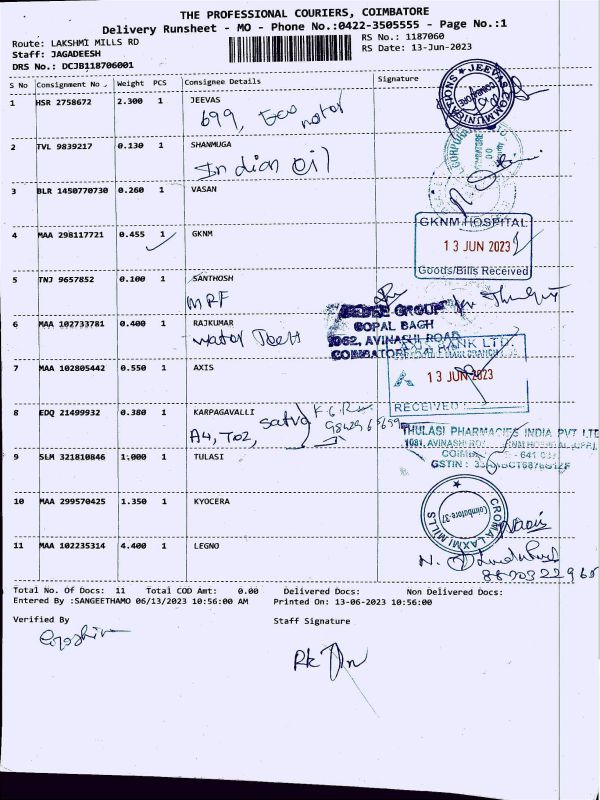 THE PROFESSIONAL COURIERS, COIMBATORE
Delivery Runsheet - MO - Phone No.:0422-3505555 - Page No.:1
Route: LAKSHMI MILLS RD
RS No.: 1187060
Staff: JAGADEESH
RS Date: 13-Jun-2023
DRS No.: DCJB118706001
S No Consignment No. Weight PCS Consignee Details Signature
1 HSR 2758672 2.300 1 JEEVAS
699, Eco motor
JEEVAS COMMUNICATIONS
COIMBATORE
2 TVL 9839217 0.130 1 SHANMUGA
Indian Oil
3 BLR 1450770730 0.260 1 VASAN
4 MAA 298117721 0.455 1 GKNM
GKNM HOSPITAL
13 JUN 2023
Goods/Bills Received
5 TNJ 9657852 0.100 1 SANTHOSH
MRF
6 MAA 102733781 0.400 1 RAJKUMAR
water Tech
GROUP
GOPAL BAGH
1062, AVINASHI ROAD
COIMBATORE
7 MAA 102805442 0.550 1 AXIS
BANK LTD.
13 JUN 2023
RECEIVED
8 EDQ 21499932 0.380 1 KARPAGAVALLI
A4, T02, satva
9 SLM 321810846 1.000 1 TULASI
THULASI PHARMACIES INDIA PVT LTD
1081, AVINASHI
- 641 037
GSTIN :
10 MAA 299570425 1.350 1 KYOCERA
CROMA LAXMI MILLS
Coimbatore-37
11 MAA 102235314 4.400 1 LEGNO
Total No. Of Docs: 11 Total COD Amt: 0.00 Delivered Docs: Non Delivered Docs:
Entered By :SANGEETHAMO 06/13/2023 10:56:00 AM Printed On: 13-06-2023 10:56:00
Verified By Staff Signature